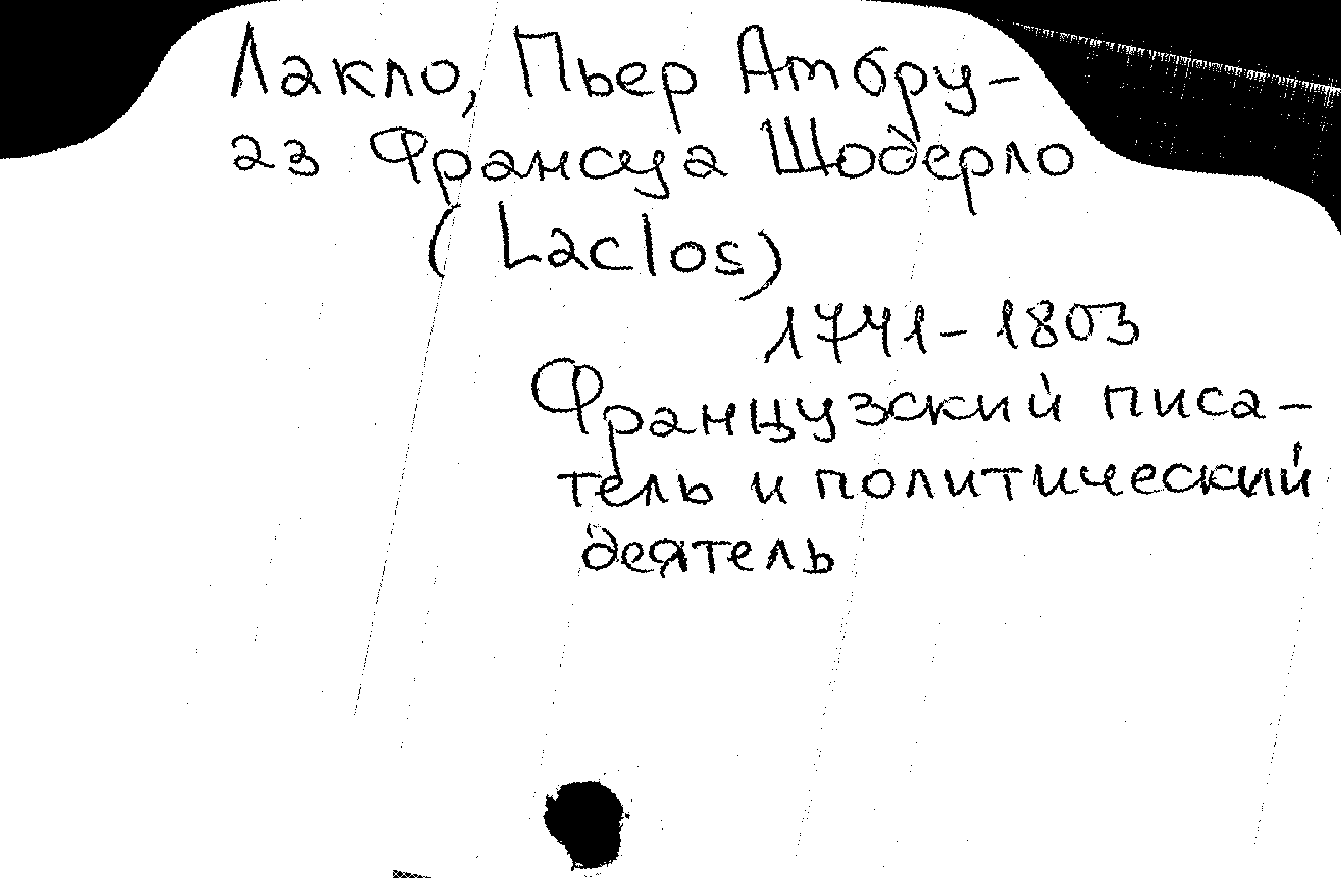 Лакло, Пьер Амбру-
аз Франсуа Шодерло
(Laclos)
1741-1803
Французский писа-
тель и политический
деятель